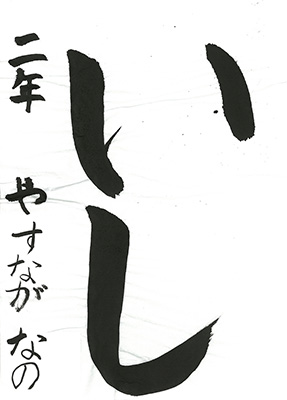 いし
二年 やすなが なの